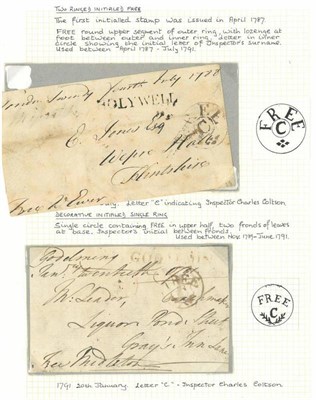 TWO RINGED INITIALED FREE
The first initialled stamp was issued in April 1787.
FREE round upper segment of outer ring, with lozenge at
foot between outer and inner ring. Letter in inner
circle showing the initial letter of Inspector's surname.
Used between April 1787 - July 1791.
London Twenty fourth July 1788
HOLYWELL
E. Jones Esq
Wepre Hall
Flintshire
FREE
C
FREE
C
Letter "C" indicating Inspector Charles Coltson
DECORATIVE INITIALED SINGLE RING
Single circle containing FREE in upper half, two fronds of leaves
at base. Inspector's initial between fronds.
Used between Nov. 1789 - June 1791.
Godalming
twentieth
Mr. Leader,
Liquor Pond Street
Gray's Inn Lane
Free Middleton
FREE
C
1791 20th January. Letter "C" - Inspector Charles Coltson